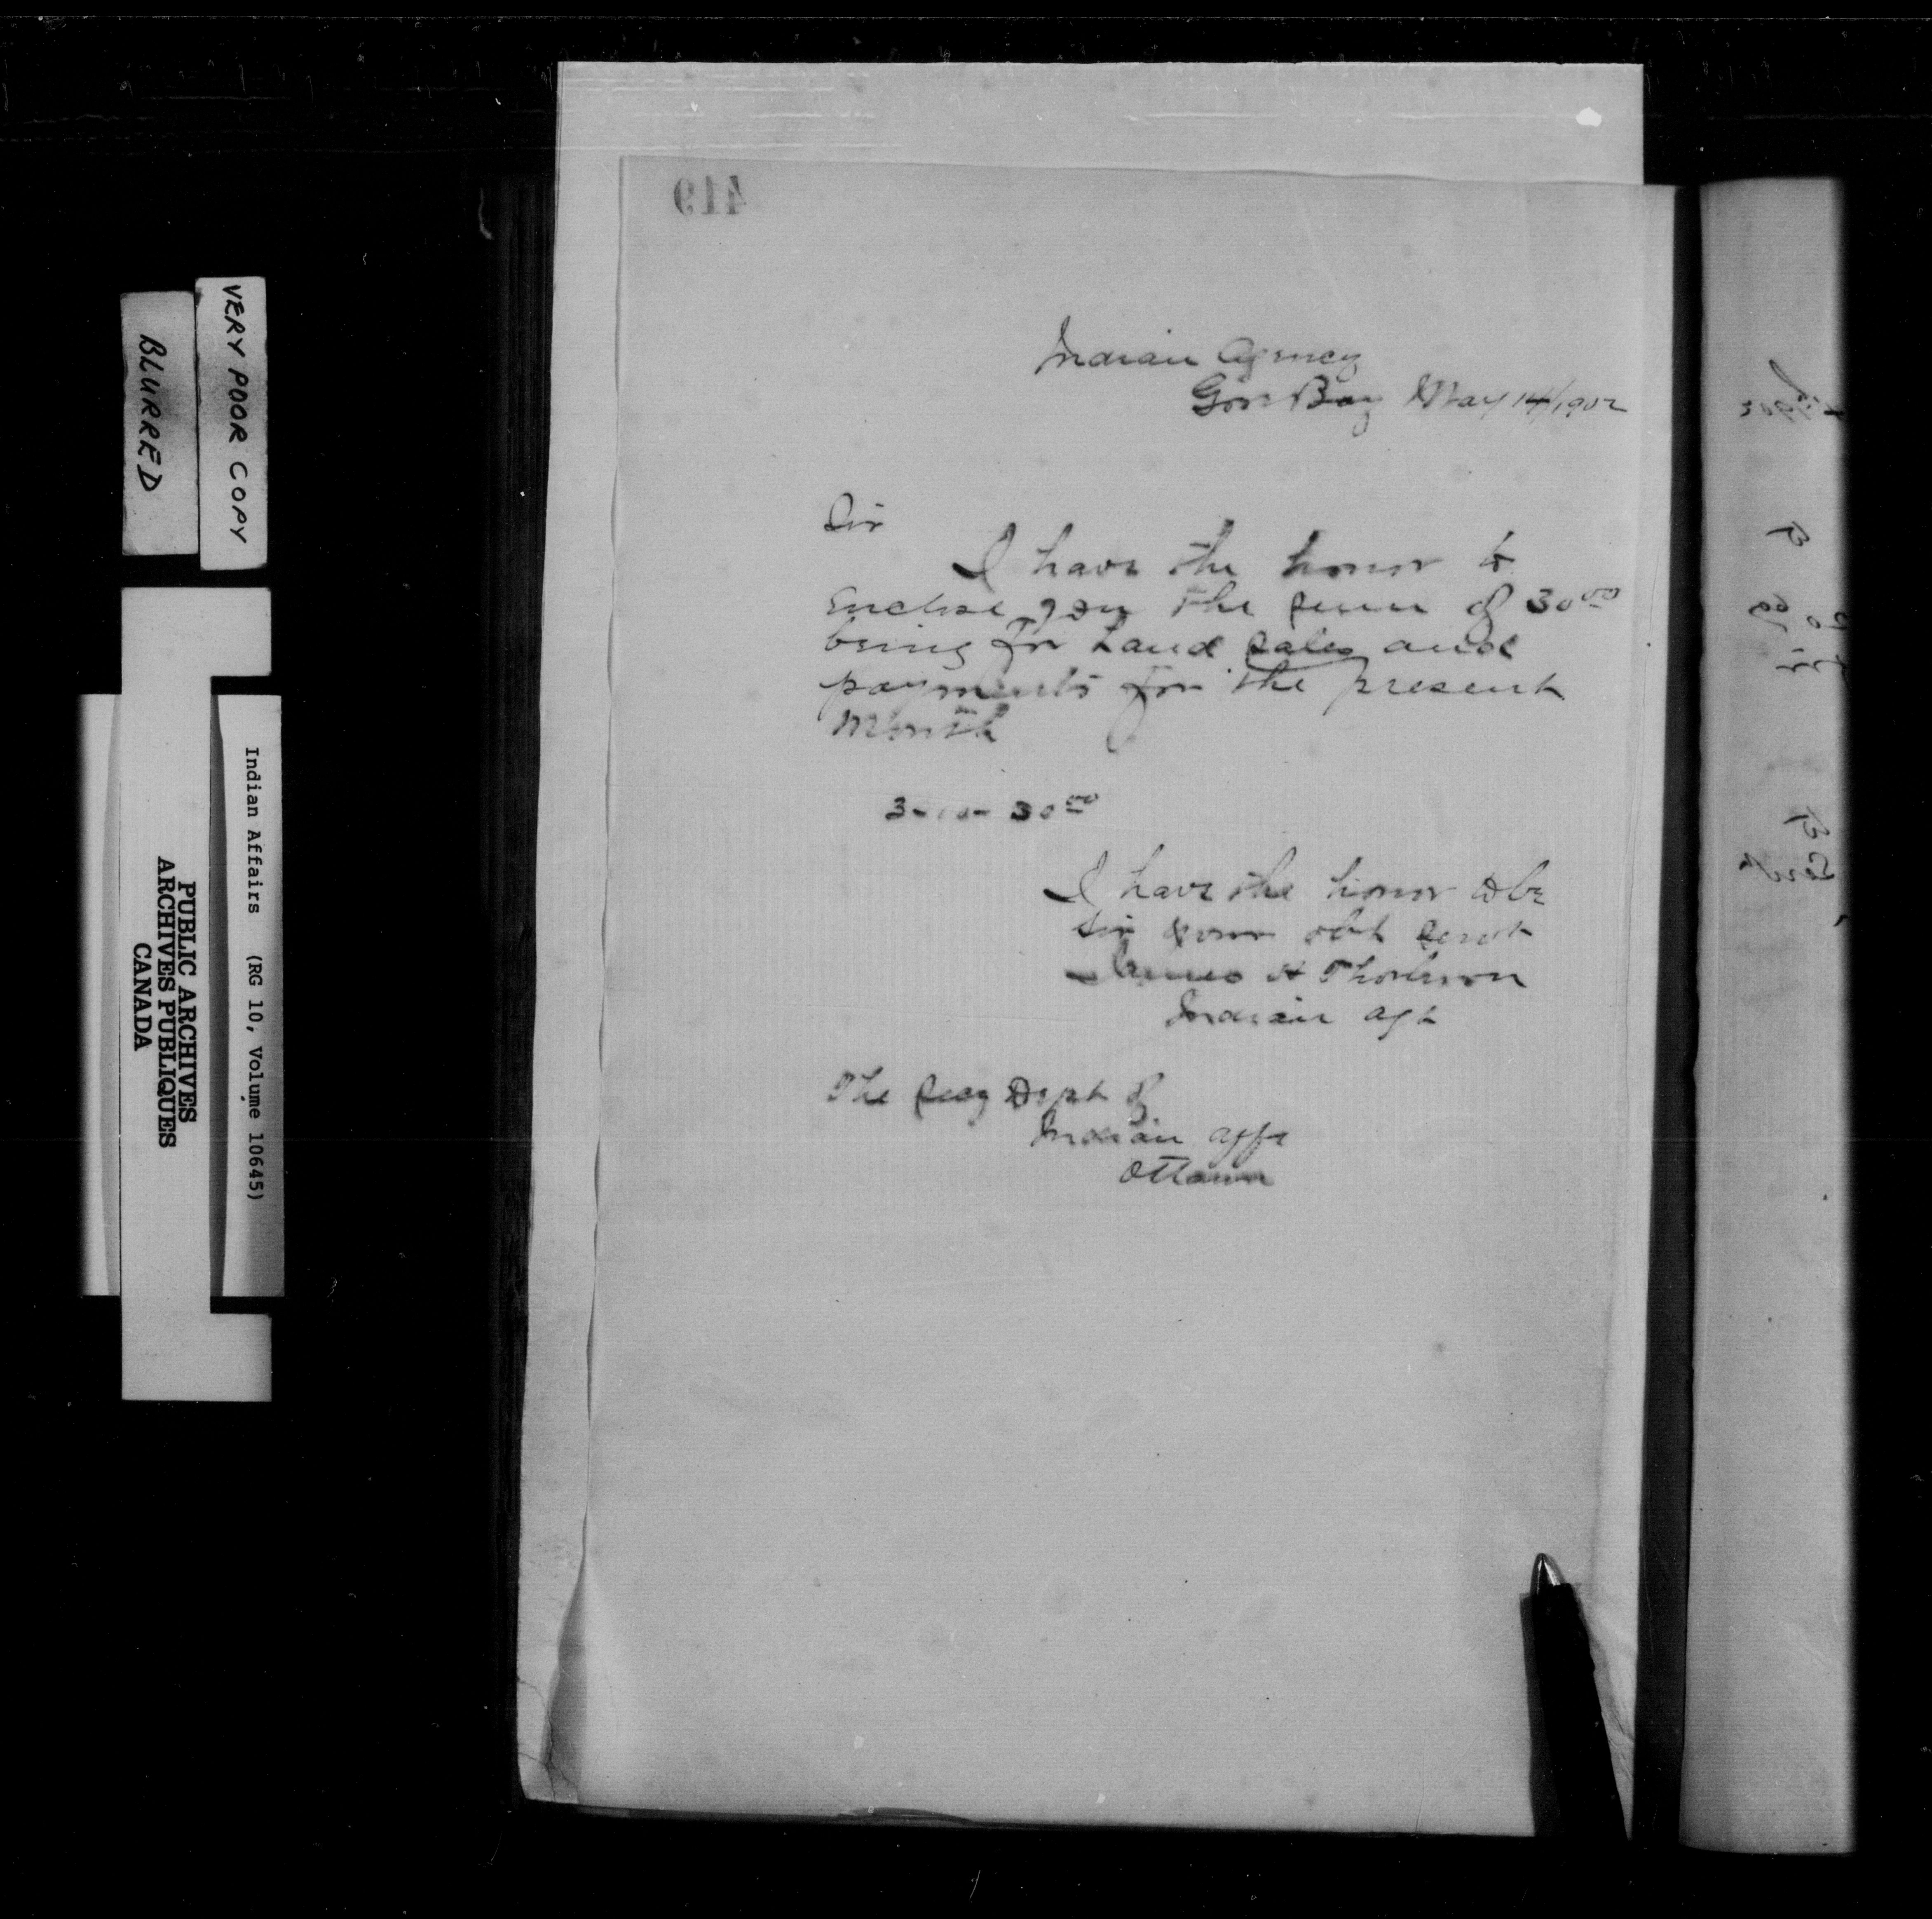 419
Indian Agency
Gore Bay May 14/1902
Sir
I have the honor to
enclose you the sum of 30 00
being for Land sales and
payments for the present
Month
3-10- 30 00
I have the honor to be
Sir your obt servt
James H Thorburn
Indian Agt
The Secy Dept of
Indian Affs
Ottawa
VERY POOR COPY
BLURRED
Indian Affairs (RG 10, Volume 10645)
PUBLIC ARCHIVES
ARCHIVES PUBLIQUES
CANADA